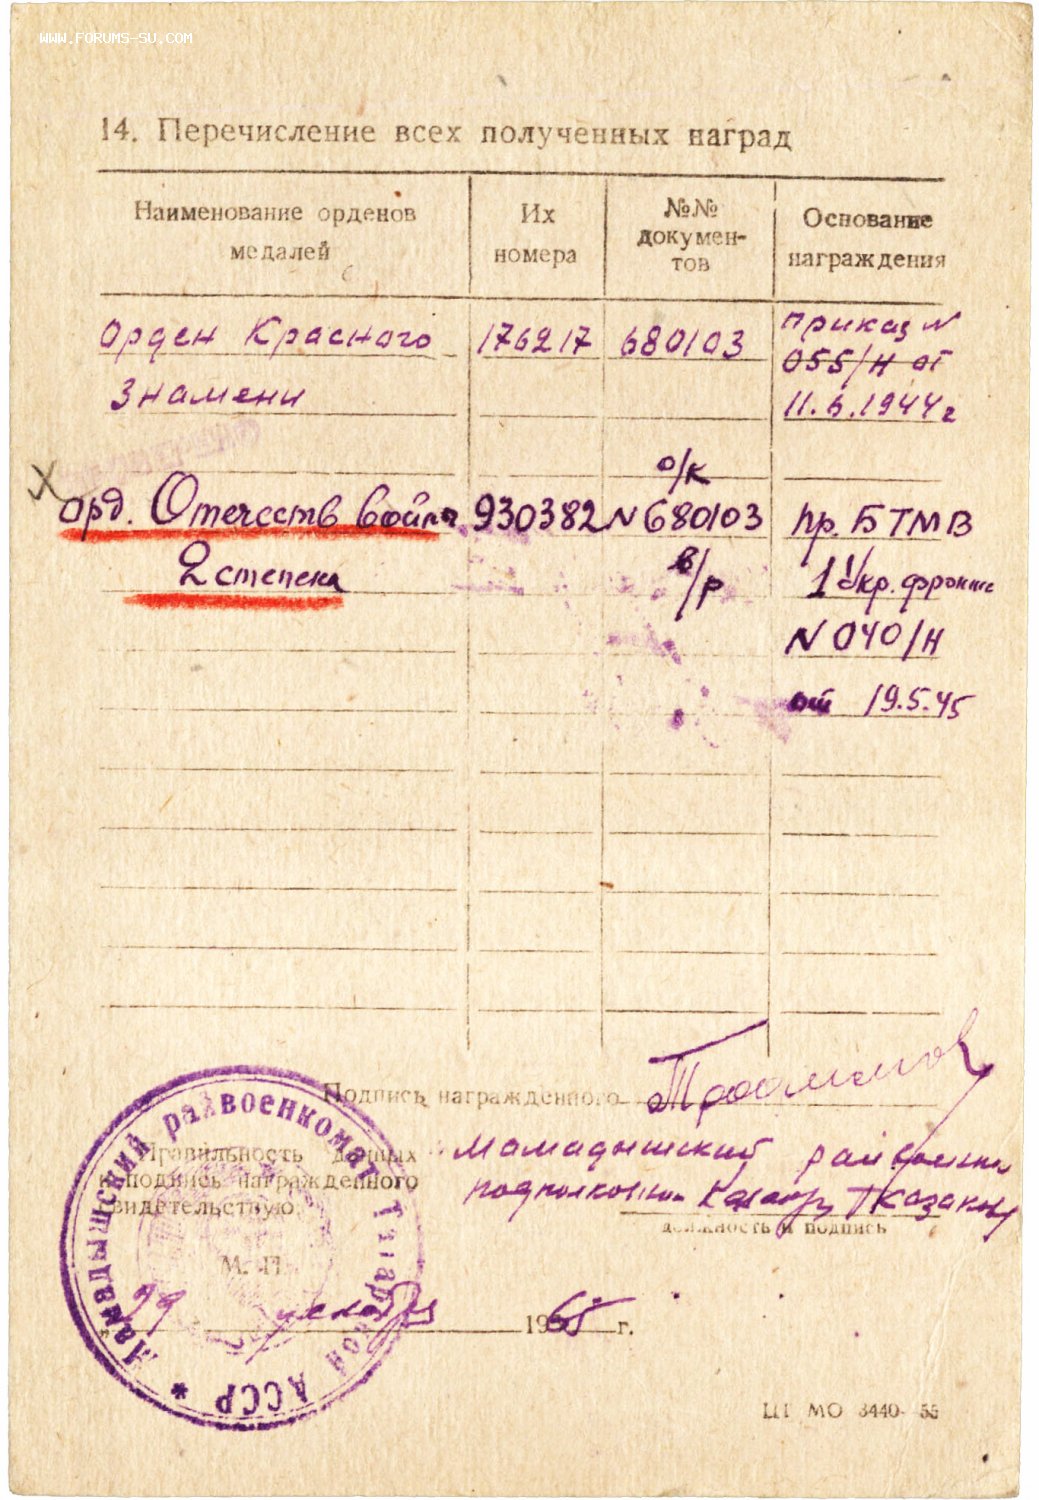 WWW.FORUMS-SU.COM
14. Перечисление всех полученных наград
Наименование орденов
медалей
Их
номера
№№
докумен-
тов
Основание
награждения
Орден Красного
Знамени
176217
680103
приказ N
055/н от
11.6.1944г
Орд. Отечеств войны
2 степени
930382
о/к
N 680103
в/р
пр. БТМВ
1 Укр. фронта
N 040/н
от 19.5.45
Подпись награжденного
Правильность данных
и подпись награжденного
свидетельствую.
Мамадышский
подполковник Казаков
должность и подпись
М. П.
29
1965 г.
Мамадышский райвоенкомат Татарской АССР *
ЦТ МО 3440-55